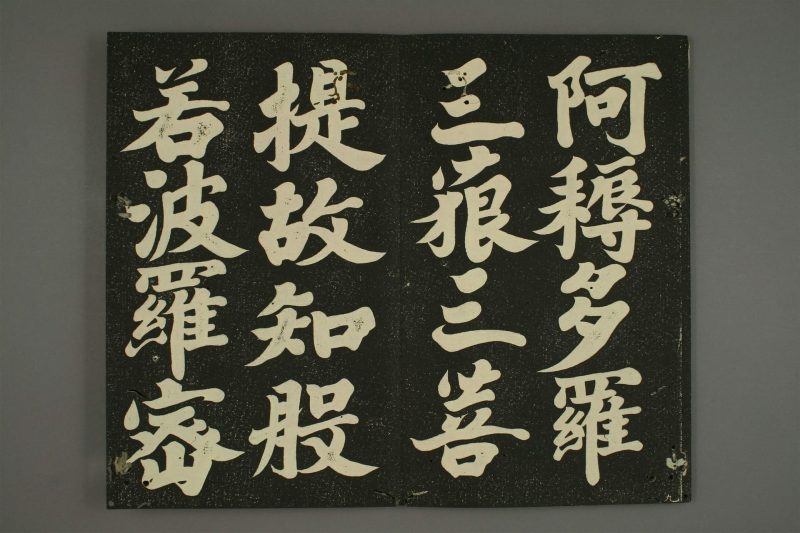 阿耨多羅
三藐三菩
提故知般
若波羅密